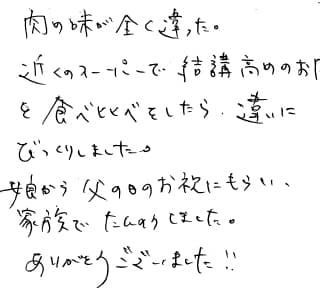 肉の味が全く違った。
近くのスーパーで結構高めのお肉
を食べくらべをしたら、違いに
びっくりしました。
娘から父の日のお祝にもらい、
家族でたんのうしました。
ありがとうございました!!